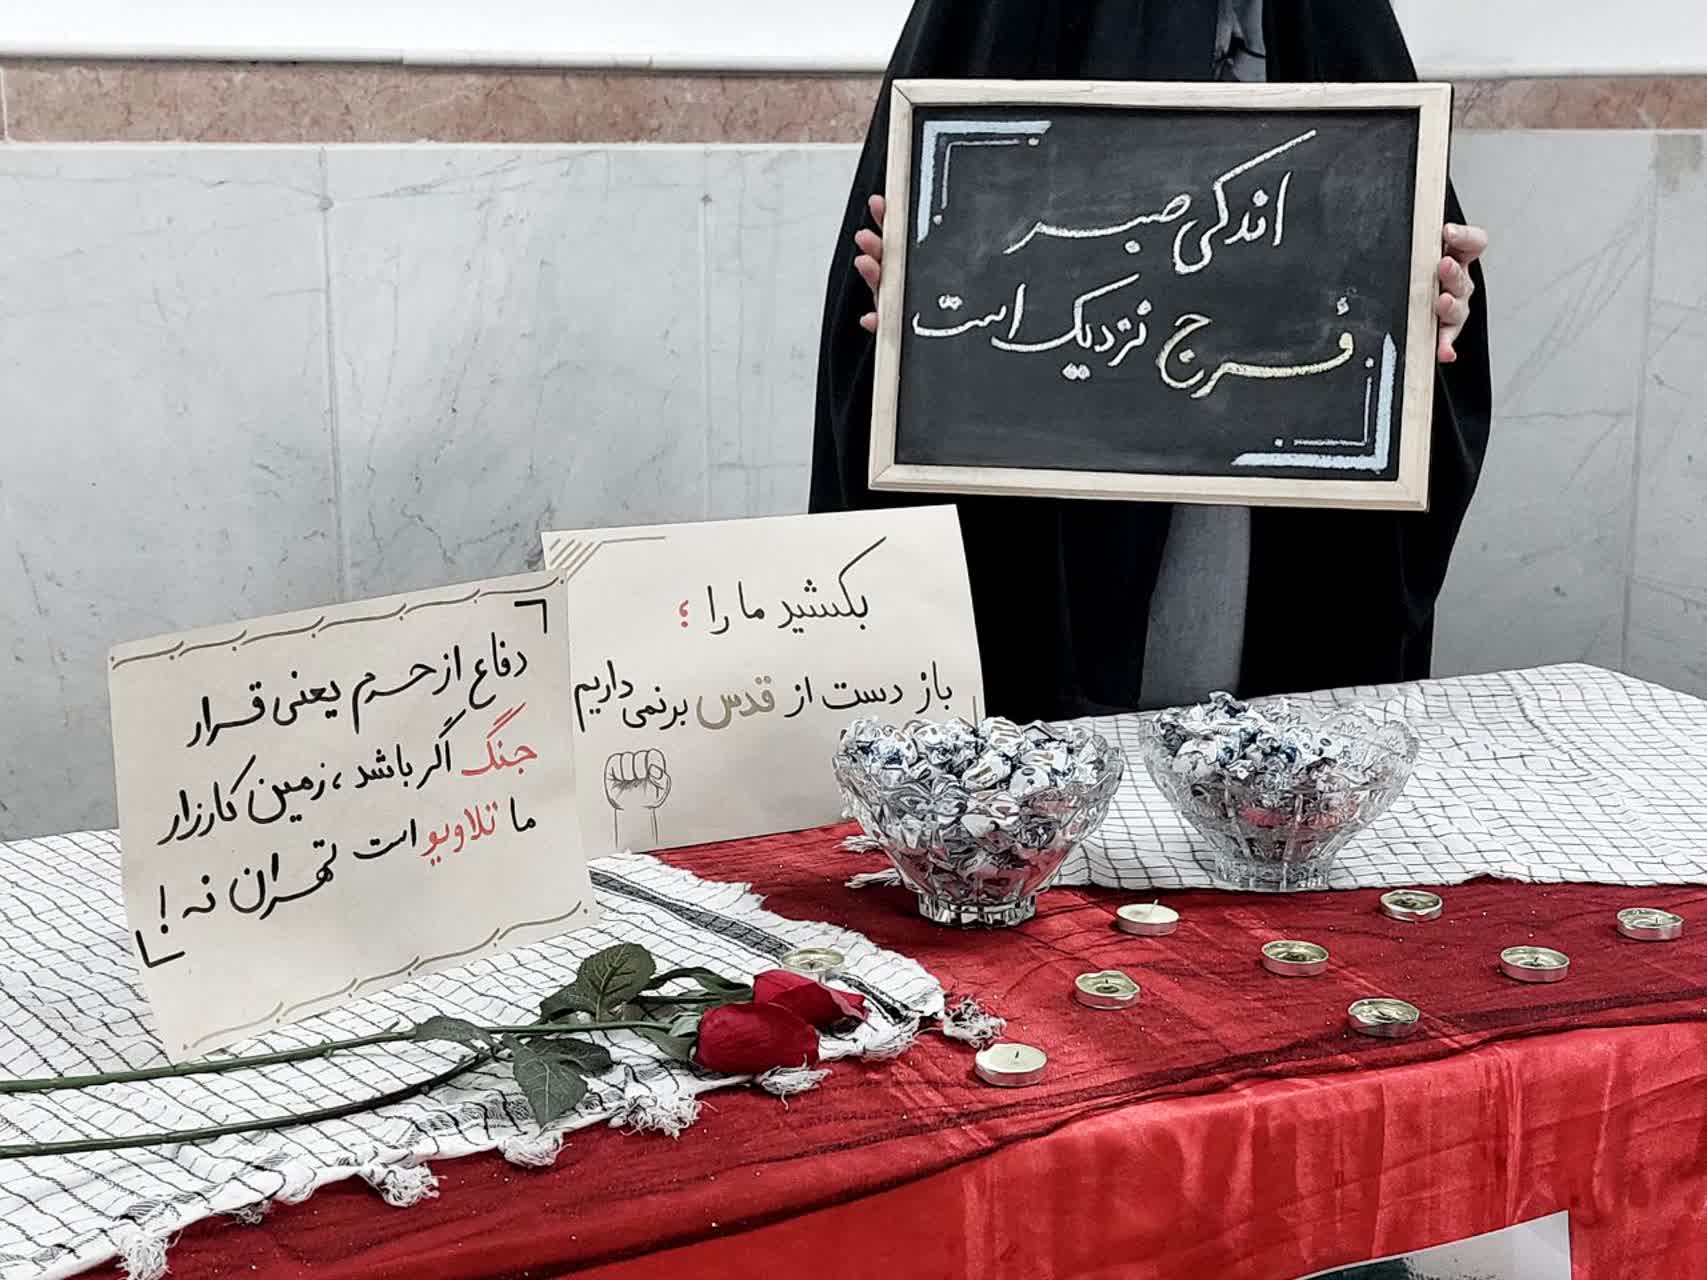 اندکی صبر
فرج نزدیک است
بکشید ما را ؛
باز دست از قدس برنمی‌داریم
دفاع از حرم یعنی قرار
جنگ اگر باشد ، زمین کارزار
ما تلاویو است تهران نه !